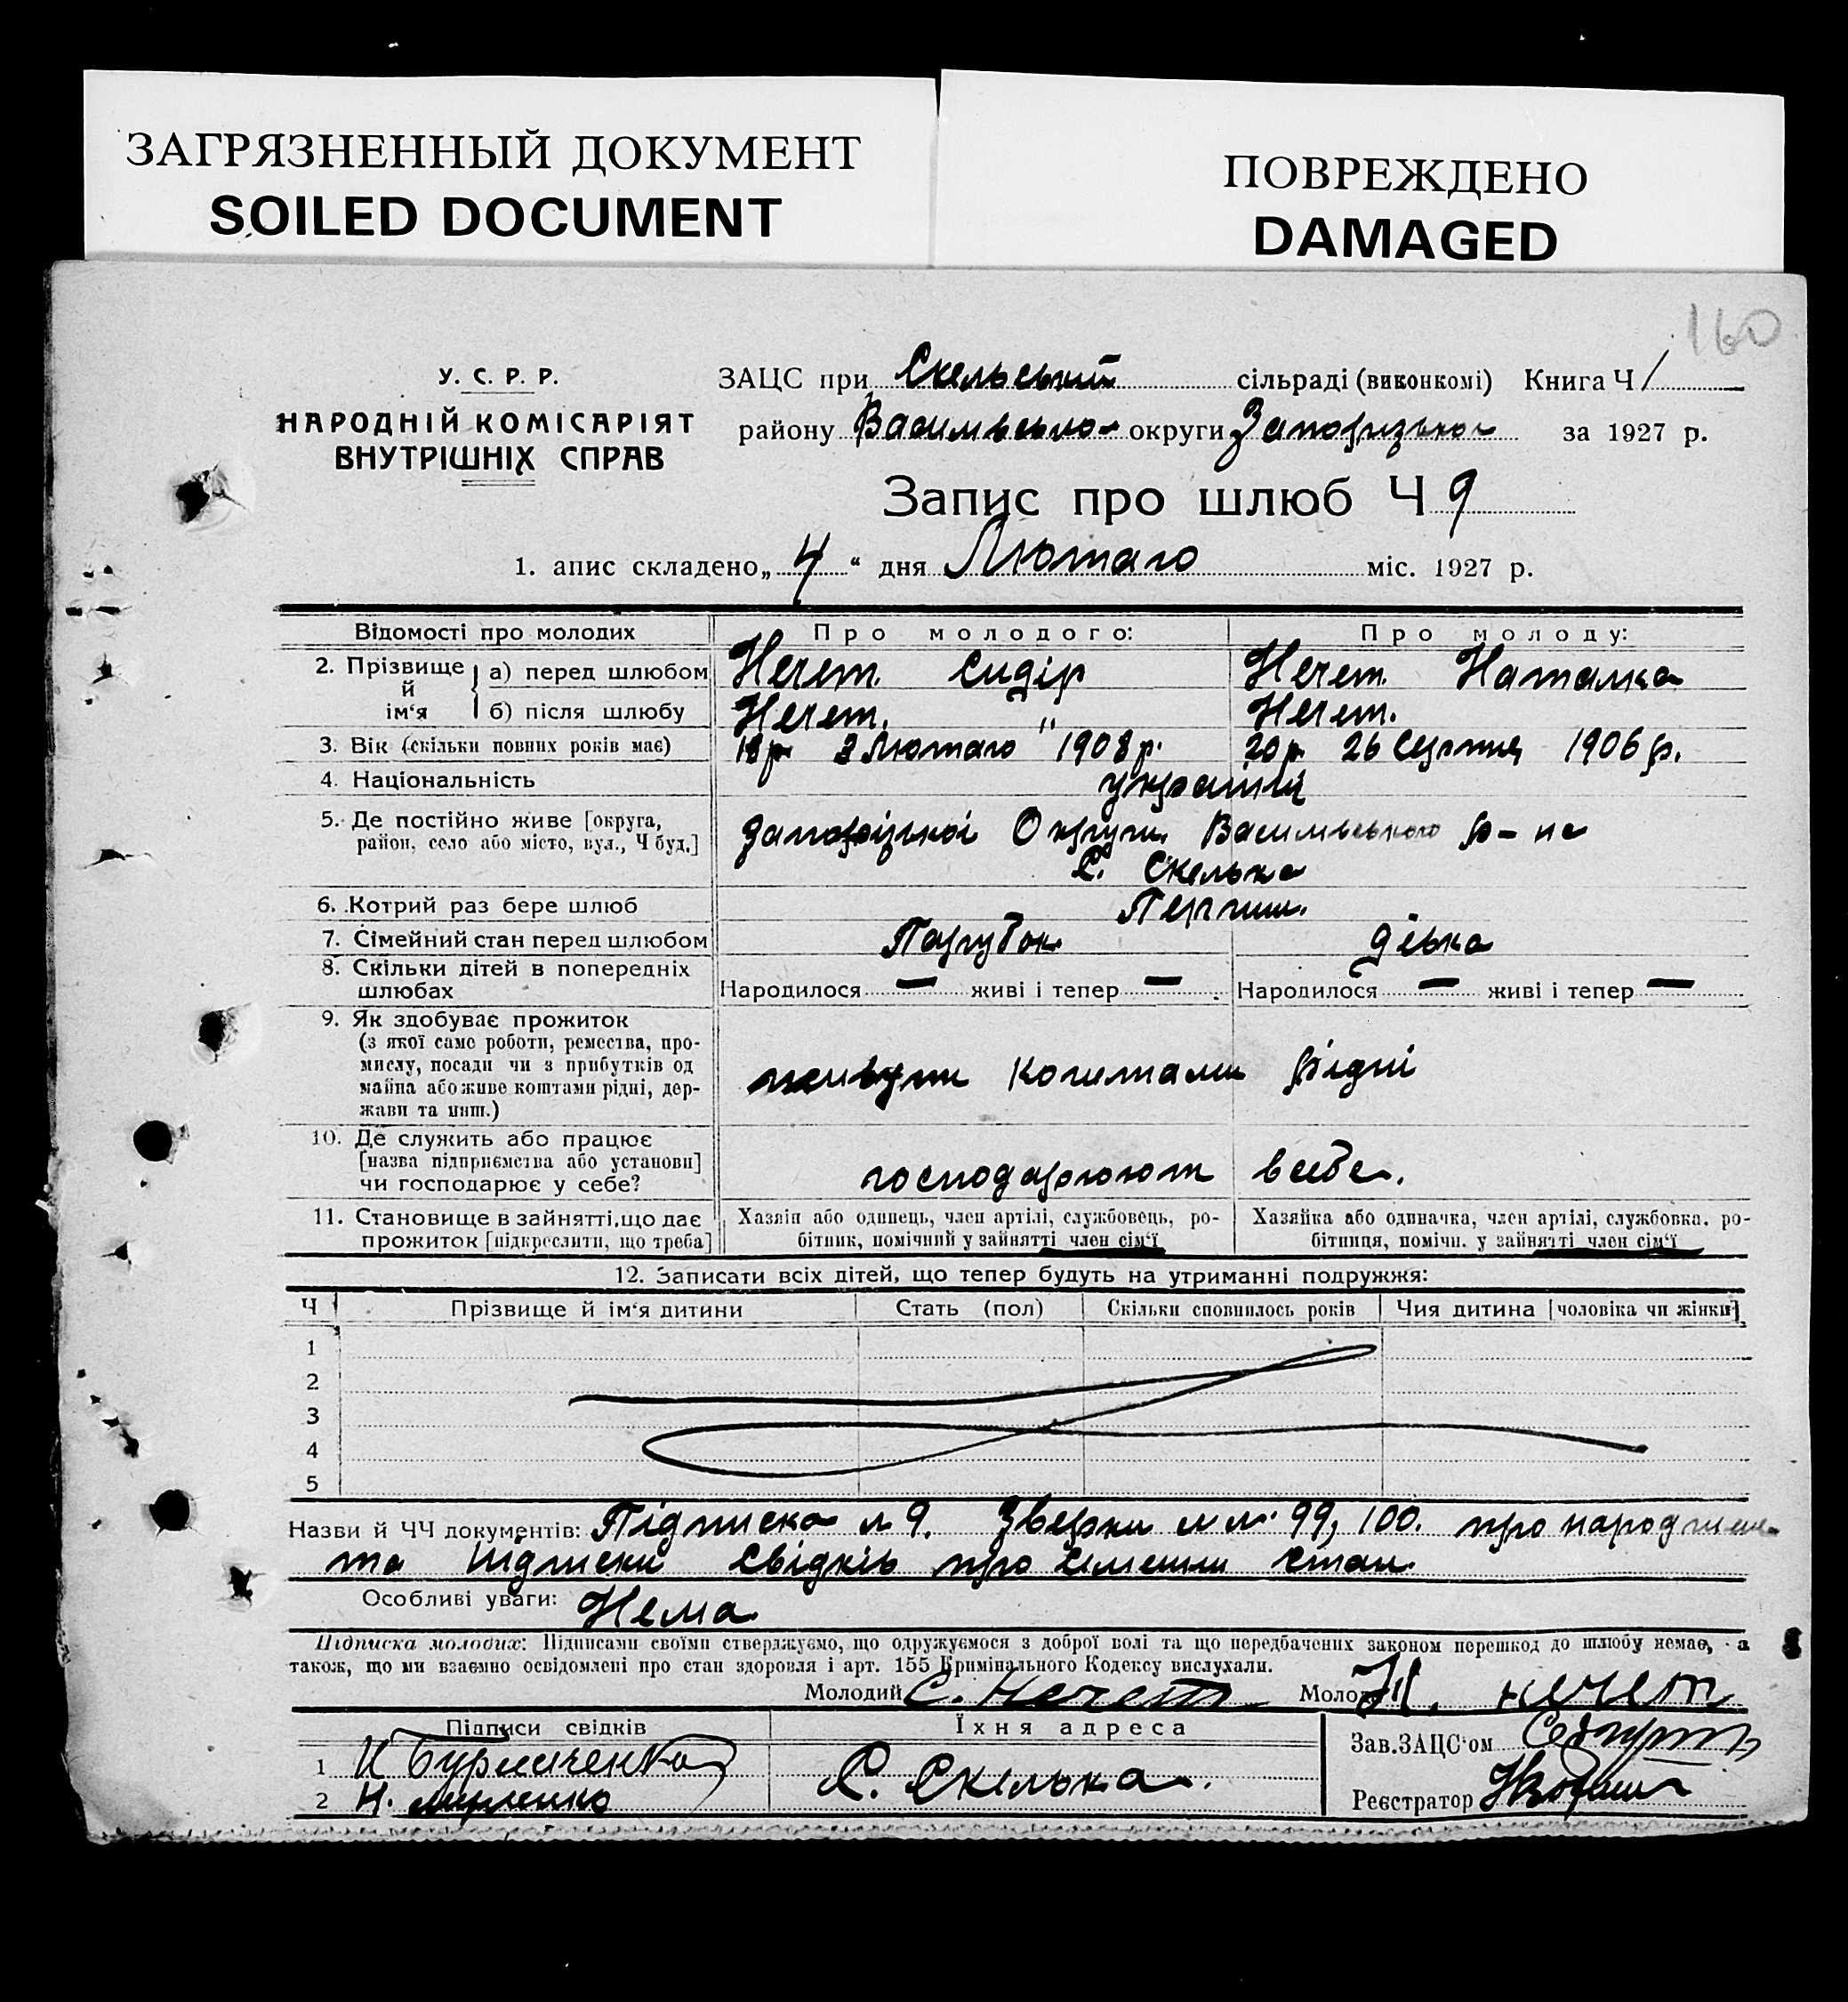 ЗАГРЯЗНЕННЫЙ ДОКУМЕНТ
SOILED DOCUMENT
ПОВРЕЖДЕНО
DAMAGED
160
У. С. Р. Р.
НАРОДНІЙ КОМІСАРІЯТ
ВНУТРІШНІХ СПРАВ
ЗАЦС при Скельський сільраді (виконкомі) Книга Ч 1
району Василівсько округи Запорізько за 1927 р.
Запис про шлюб Ч 9
1. апис складено „ 4 “ дня Лютаго міс. 1927 р.
Відомості про молодих Про молодого: Про молоду:
2. Прізвище й ім‘я а) перед шлюбом Нечет. Сидір Нечет Наталка
б) після шлюбу Нечет. " Нечет.
3. Вік (скільки повних років має) 18 р 3 Лютаго 1908 р. 20 р 26 Серпня 1906 р.
4. Національність українці
5. Де постійно живе [округа, район, село або місто, вул., Ч буд.] Запорізької Округи Василівського р-на
С. Скелька
6. Котрий раз бере шлюб Перший.
7. Сімейний стан перед шлюбом Парубок дівка
8. Скільки дітей в попередніх шлюбах Народилося — живі і тепер — Народилося — живі і тепер —
9. Як здобуває прожиток
(з якої саме роботи, ремества, про-
мислу, посади чи з прибутків од
майна або живе коштами рідні, дер-
жави та инш.)
живуть коштами рідні
10. Де служить або працює
[назва підприємства або установи]
чи господарює у себе?
господарюють в себе.
11. Становище в зайнятті, що дає
прожиток [підкреслити, що треба]
Хазяін або одинець, член артілі, службовець, ро-
бітник, помічний у зайнятті член сім‘ї
Хазяйка або одиначка, член артілі, службовка, ро-
бітниця, помічн. у зайнятті член сім‘ї
12. Записати всіх дітей, що тепер будуть на утриманні подружжя:
Ч Прізвище й ім‘я дитини Стать (пол) Скільки сповнилось років Чия дитина [чоловіка чи жінки]
1
2
3
4
5
Назви й ЧЧ документів: Підписка 9. Зверки 99, 100. про народжене
та Підписки свідків про стан.
Особливі уваги: Нема
Підписка молодих: Підписами своїми стверджуємо, що одружуємося з доброї волі та що передбачених законом перешкод до шлюбу немає, а
також, що ми взаємно освідомлені про стан здоровля і арт. 155 Кримінального Кодексу вислухали.
Молодий С. Нечет Моло Н. нечет
Підписи свідків Їхня адреса
Зав.ЗАЦС‘ом
1
2 Н.
С. Скелька.
Реєстратор